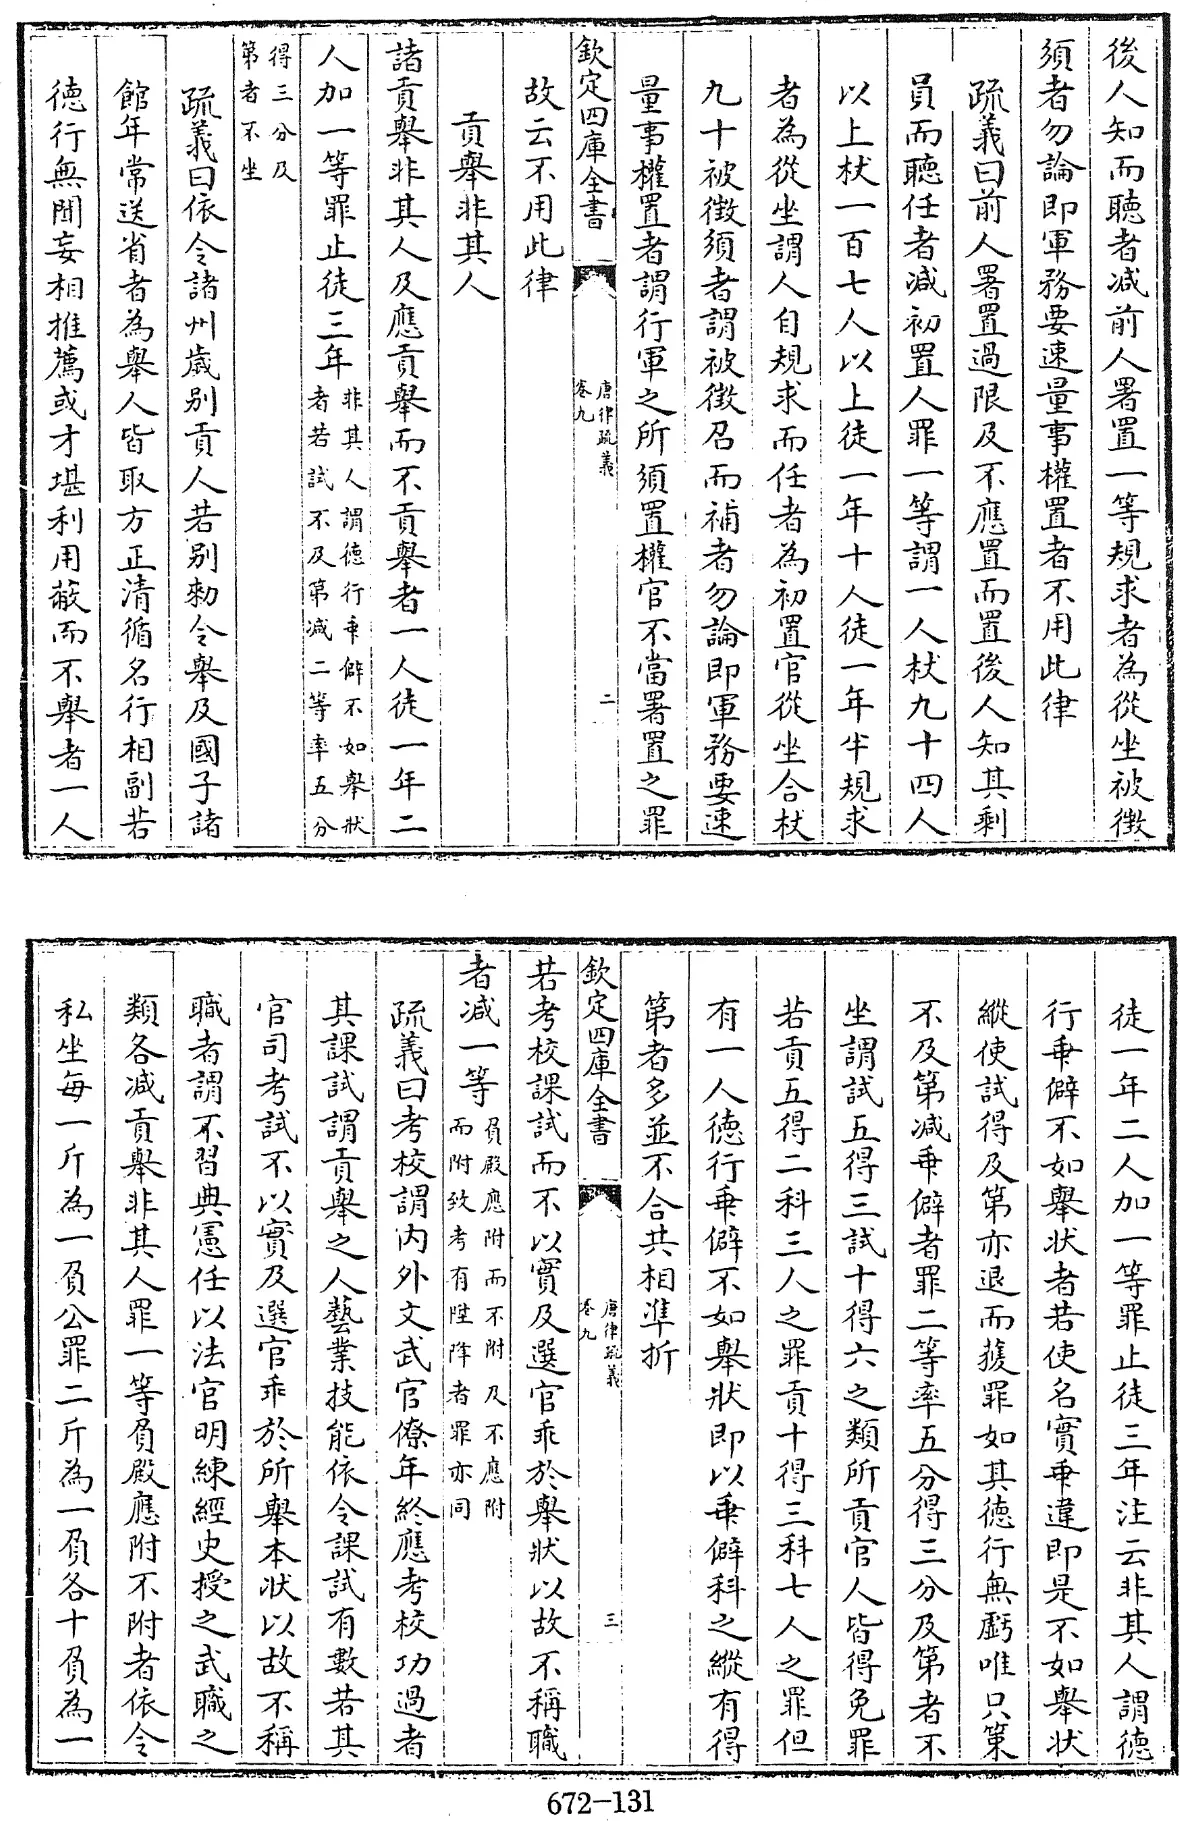 後人知而聽者减前人署置一等規求者為從坐被徴
須者勿論即軍務要速量事權置者不用此律
疏義曰前人署置過限及不應置而置後人知其剰
員而聽任者减初置人罪一等謂一人杖九十四人
以上杖一百七人以上徒一年十人徒一年半規求
者為從坐謂人自規求而任者為初置官從坐合杖
九十被徴須者謂被徴召而補者勿論即軍務要速
量事權置者謂行軍之所須置權官不當署置之罪
欽定四庫全書
唐律疏義
卷九
二
故云不用此律
貢舉非其人
諸貢舉非其人及應貢舉而不貢舉者一人徒一年二
人加一等罪止徒三年
非其人謂德行乖僻不如舉狀
者若試不及第减二等率五分
得三分及
第者不坐
疏義曰依令諸州歲别貢人若别勅令舉及國子諸
館年常送省者為舉人皆取方正清循名行相副若
德行無聞妄相推薦或才堪利用蔽而不舉者一人
徒一年二人加一等罪止徒三年注云非其人謂德
行乖僻不如舉狀者若使名實乖違即是不如舉狀
縱使試得及第亦退而獲罪如其德行無虧唯只策
不及第减乖僻者罪二等率五分得三分及第者不
坐謂試五得三試十得六之類所貢官人皆得免罪
若貢五得二科三人之罪貢十得三科七人之罪但
有一人德行乖僻不如舉狀即以乖僻科之縱有得
第者多並不合共相準折
欽定四庫全書
唐律疏義
卷九
三
若考校課試而不以實及選官乖於舉狀以故不稱職
者减一等
負殿應附而不附及不應附
而附致考有陞降者罪亦同
疏義曰考校謂内外文武官僚年終應考校功過者
其課試謂貢舉之人藝業技能依令課試有數若其
官司考試不以實及選官乖於所舉本狀以故不稱
職者謂不習典憲任以法官明練經史授之武職之
類各减貢舉非其人罪一等負殿應附不附者依令
私坐每一斤為一負公罪二斤為一負各十負為一
672-131